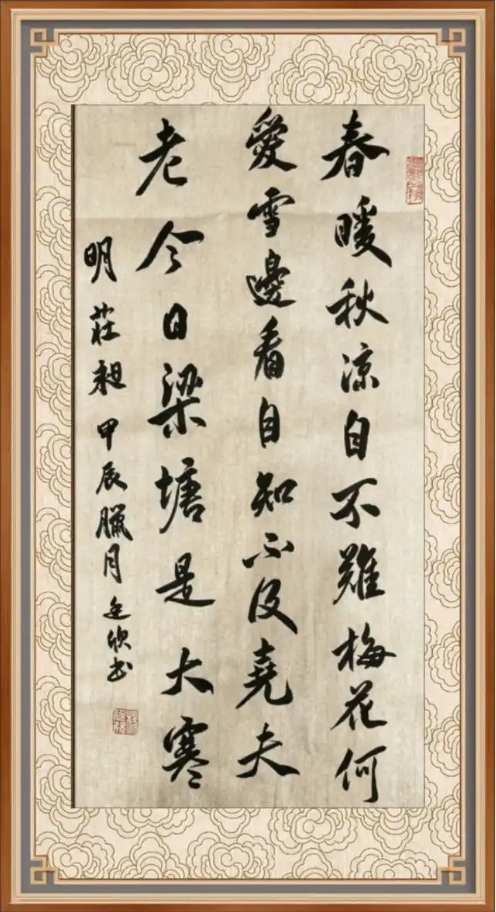 春暖秋凉自不難梅花何
愛雪邊看自知不及堯夫
老今日梁塘是大寒
明莊昶甲辰臘月廷欣书